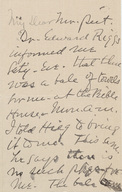 My dear Mr. Peet:
Dr. Edward Riggs
informed me
that there
was a bale of
for me at the Bible
House.
I told Hagop to bring
it down. This a.m.
he says there is
no such
The bale